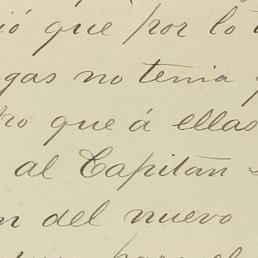 ió que por lo
gas no tenia
ro que á ellas
al Capitán
n del nuevo